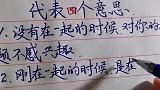 代表四个意思
1.没有在一起的时候,对你的
频不感兴趣
2.刚在一起的时候,是在